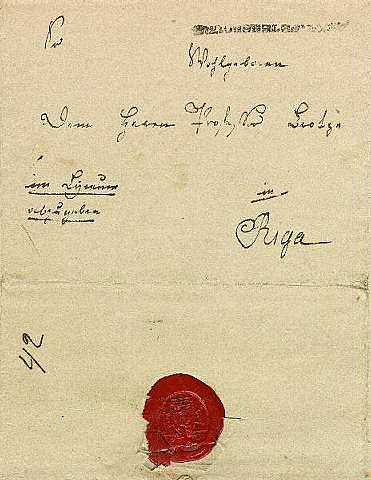 Sr
Wohlgeboren
Dem Herrn Professor Brotze
in
im Lyceum
abzugeben
Riga
42